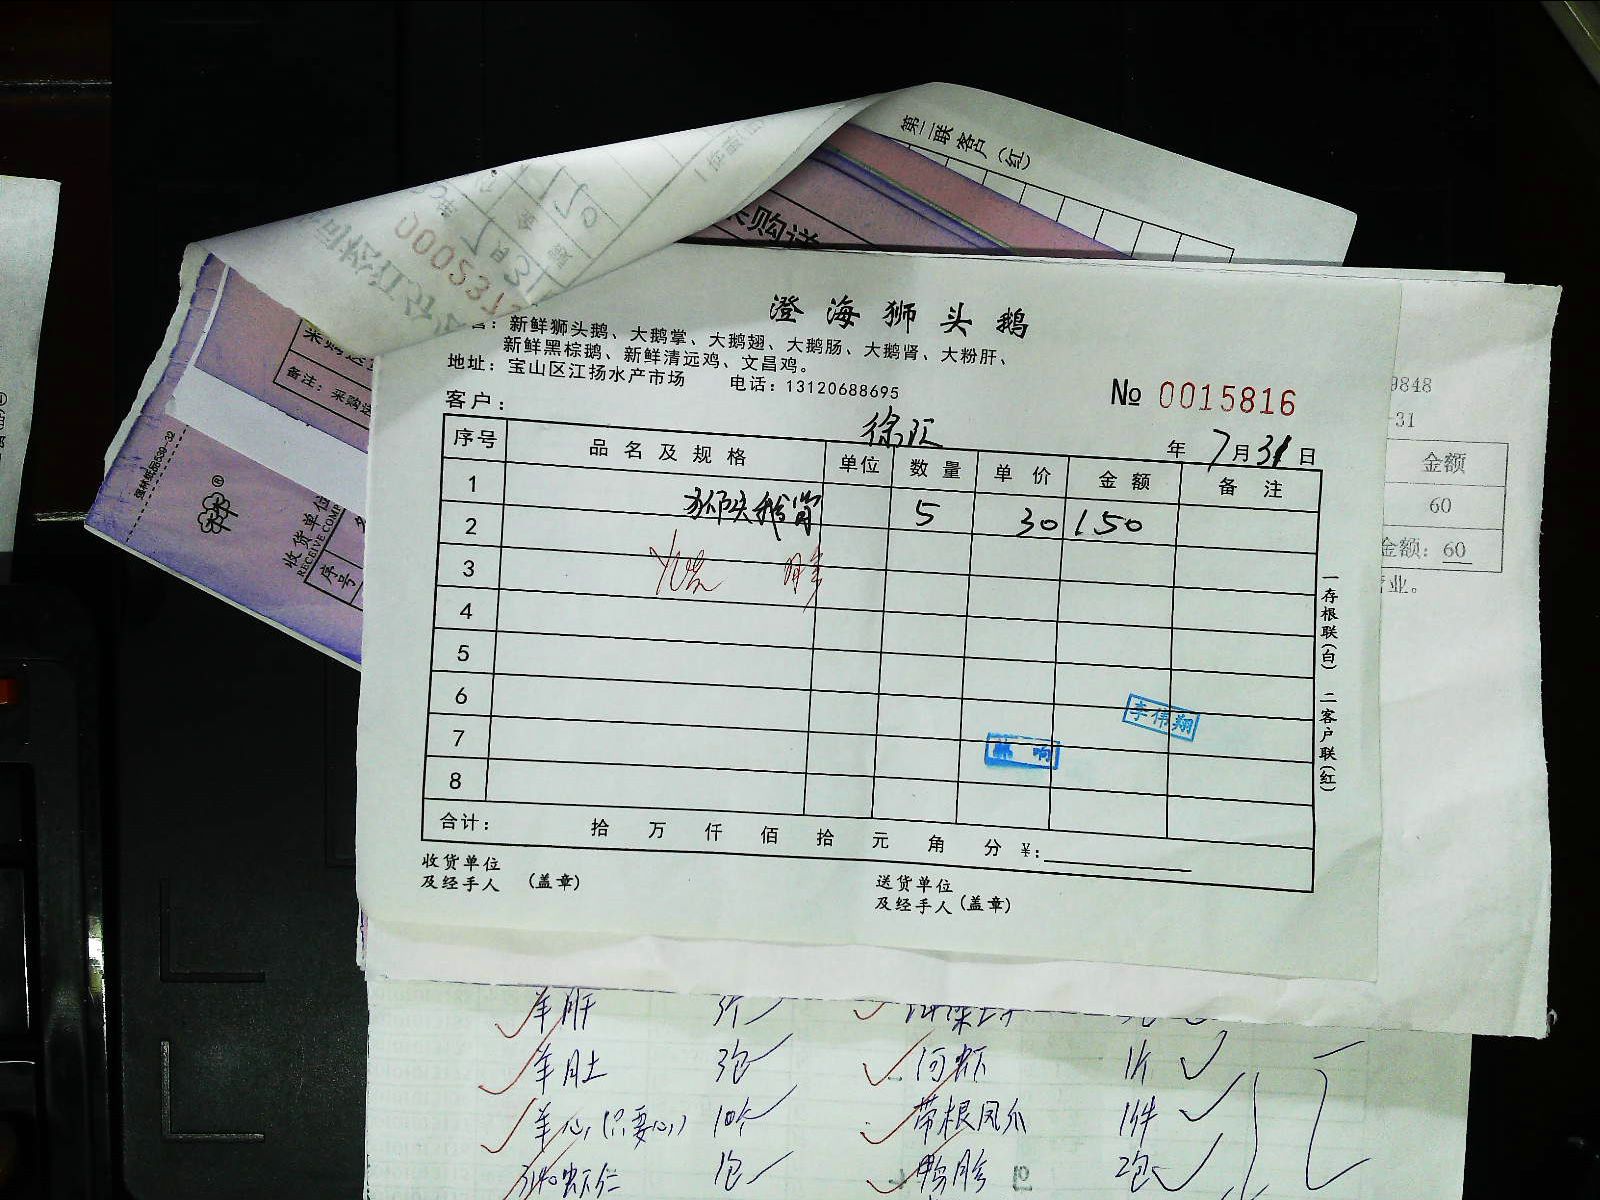 第二联客户（红）
0000231
采购送
采购送
备注：采购送
强林纸品539-32
收货单位
RECEIVE COMP
序号
澄海狮头鹅
新鲜狮头鹅、大鹅掌、大鹅翅、大鹅肠、大鹅肾、大粉肝、
新鲜黑棕鹅、新鲜清远鸡、文昌鸡。
地址：宝山区江扬水产市场 电话：13120688695
№ 0015816
客户：
年 7月31日
序号 品名及规格 单位 数量 单价 金额 备注
1 狮头鹅肾 5 30 150
2
3
4
5
6
7
8
李伟翔
响
合计： 拾 万 仟 佰 拾 元 角 分 ¥：
收货单位
及经手人 （盖章）
送货单位
及经手人（盖章）
一存根联（白） 二客户联（红）
9848
-31
金额
60
金额：60
业。
羊肝
羊肚 3包 河虾 1斤
羊心（只要心） 10个 带根凤爪 1件
虾仁 1包 鸭胗 2包